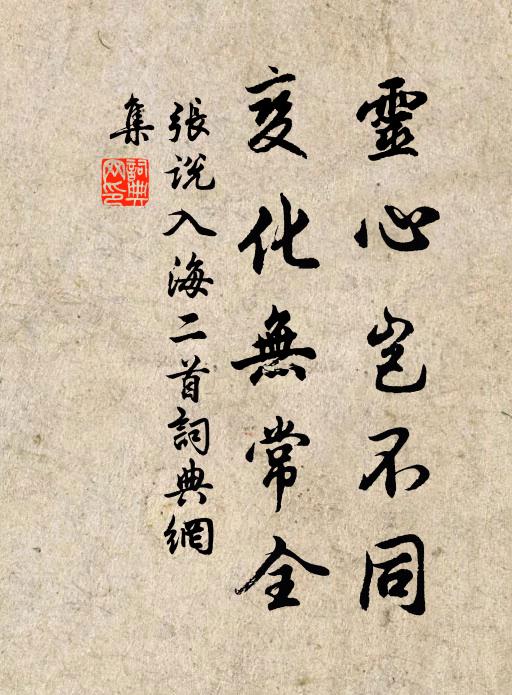 靈心岂不同
变化無常全
張说入海二首詞典網
集
詞典
网印